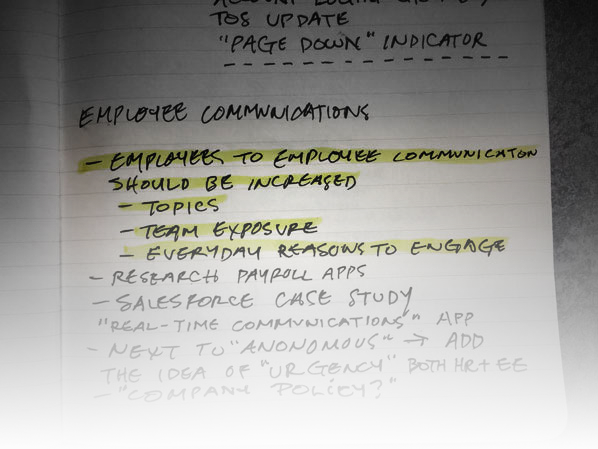 TOS UPDATE
"PAGE DOWN" INDICATOR
EMPLOYEE COMMUNICATIONS
- EMPLOYEES TO EMPLOYEE COMMUNICATON
SHOULD BE INCREASED
- TOPICS
- TEAM EXPOSURE
- EVERYDAY REASONS TO ENGAGE
- RESEARCH PAYROLL APPS
- SALESFORCE CASE STUDY
"REAL-TIME COMMUNICATIONS" APP
- NEXT TO "ANONOMOUS" → ADD
THE IDEA OF "URGENCY" BOTH HR + EE
- "COMPANY POLICY?"